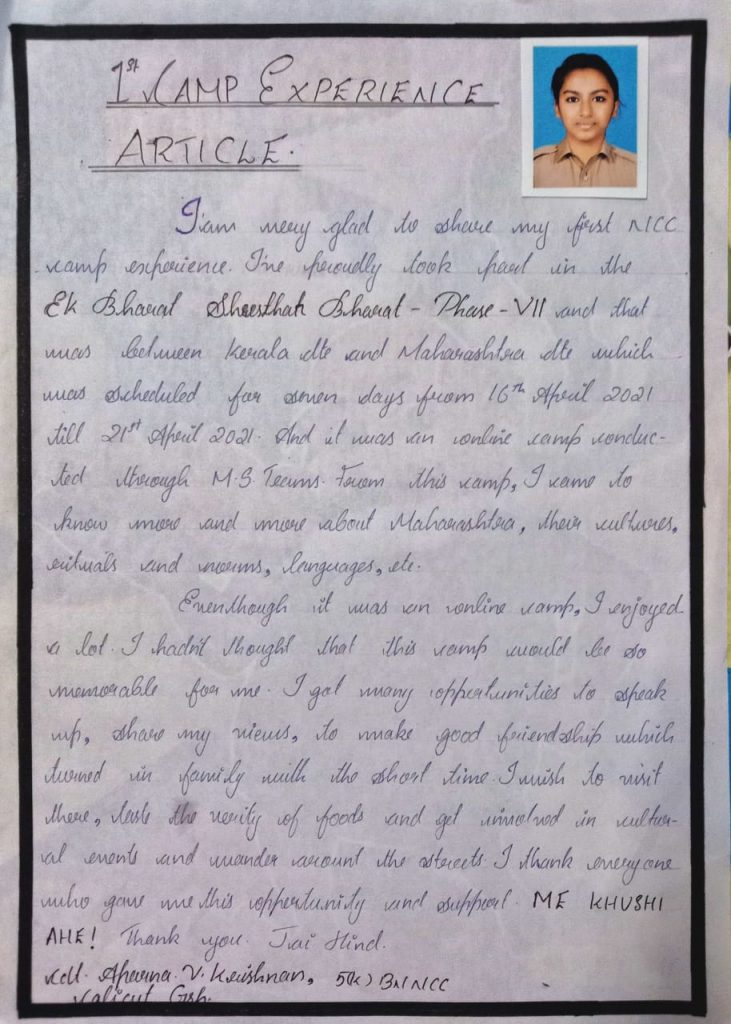 1st CAMP EXPERIENCE
ARTICLE.
I am very glad to share my first NCC
camp experience. I've proudly took part in the
Ek Bharat Shresthah Bharat - Phase - VII and that
was between Kerala dte and Maharashtra dte which
was scheduled for seven days from 16th April 2021
till 21st April 2021. And it was an online camp conduc-
ted through M.S. Teams. From this camp, I came to
know more and more about Maharashtra, their cultures,
rituals and norms, languages, etc.
Eventhough it was an online camp, I enjoyed
a lot. I hadn't thought that this camp would be so
memorable for me. I got many opportunities to speak
up, share my views, to make good friendship which
turned in family with the short time. I wish to visit
there, taste the verity of foods and get involved in cultur-
al events and wander arount the streets. I thank everyone
who gave me this opportunity and support. ME KHUSHI
AHE! Thank you. Jai Hind.
Cdt. Aparna. V. Krishnan, 5(K) BN NCC
Calicut Grp.